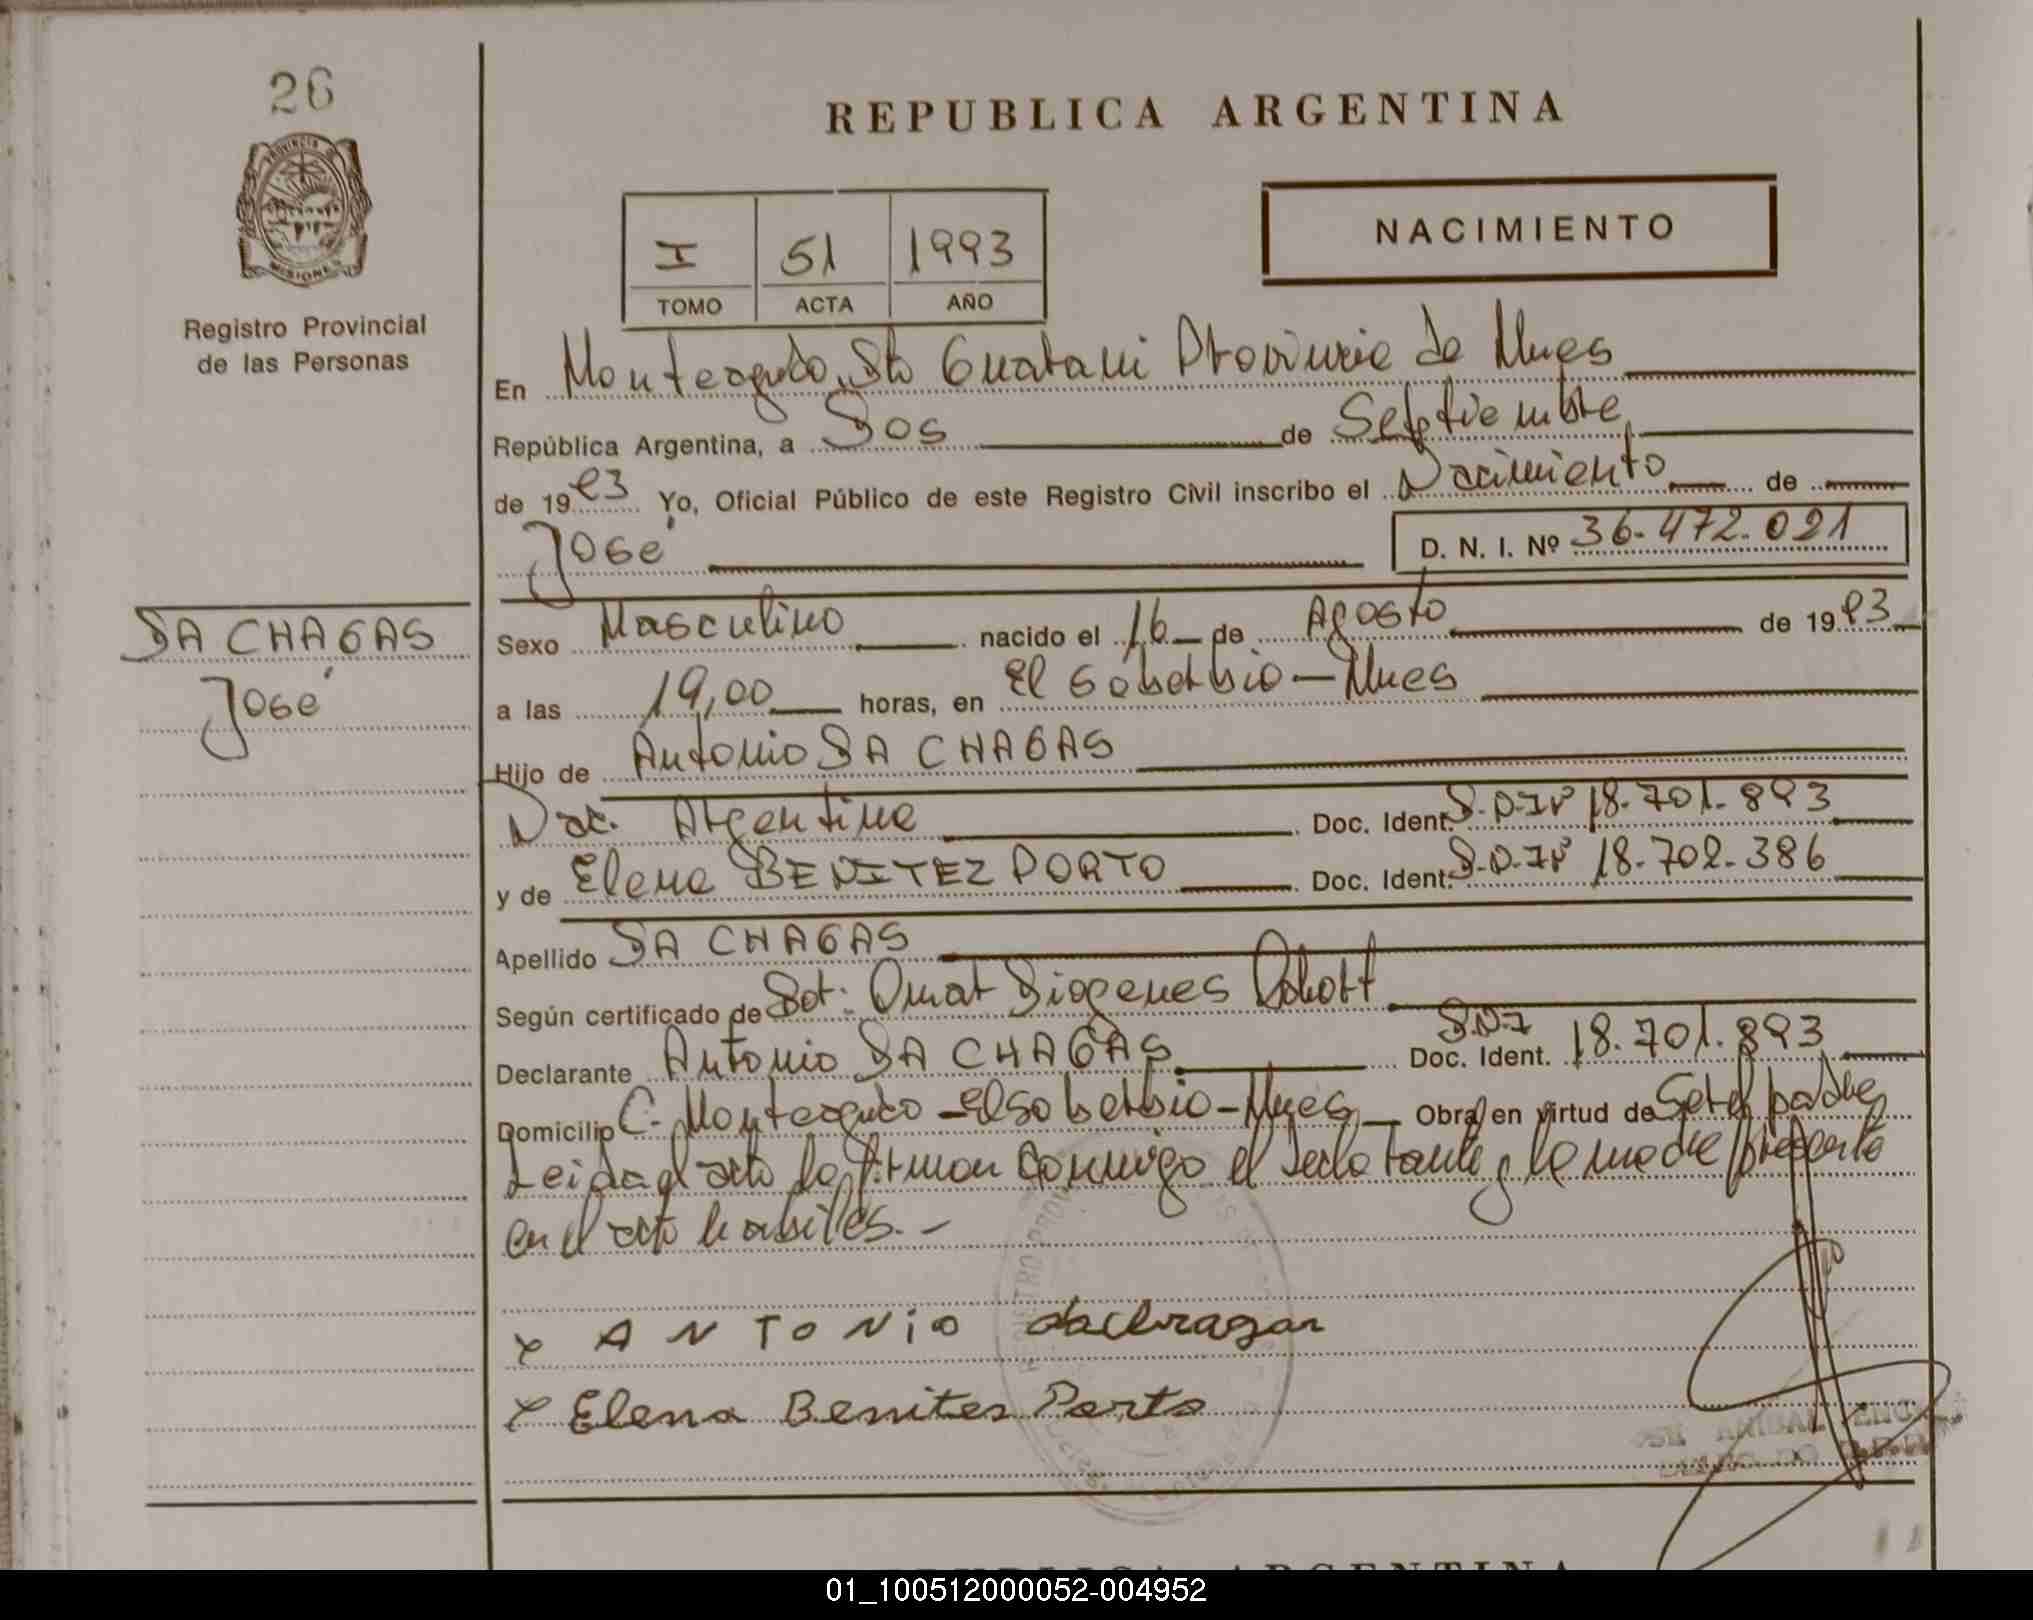 26
REPUBLICA ARGENTINA
PROVINCIA DE
MISIONES
Registro Provincial
de las Personas
I 51 1993
TOMO ACTA AÑO
NACIMIENTO
En Monteagudo, Dto Guarani Provincia de Mnes
República Argentina, a Dos de Septiembre
de 1993 Yo, Oficial Público de este Registro Civil inscribo el Nacimiento de
José D. N. I. Nº 36.472.021
DA CHAGAS
José
Sexo Masculino nacido el 16 de Agosto de 1993
a las 19,00 horas, en El Soberbio - Mnes
Hijo de Antonio DA CHAGAS
Nac. Argentina Doc. Ident. D.N.I Nº 18.701.893
y de Elena BENITEZ PORTO Doc. Ident. D.N.I Nº 18.702.386
Apellido DA CHAGAS
Según certificado de Dot: Omar Diogenes
Declarante Antonio DA CHAGAS Doc. Ident. D.N.I 18.701.893
Domicilio C. Monteagudo - El Soberbio - Mnes Obra en virtud de Ser el padre
Leida el acta la firman conmigo el declarante y la madre presente
en el acto habiles. -
x ANTONIO dachragar
x Elena Benites Porto
REPUBLICA ARGENTINA
01_100512000052-004952